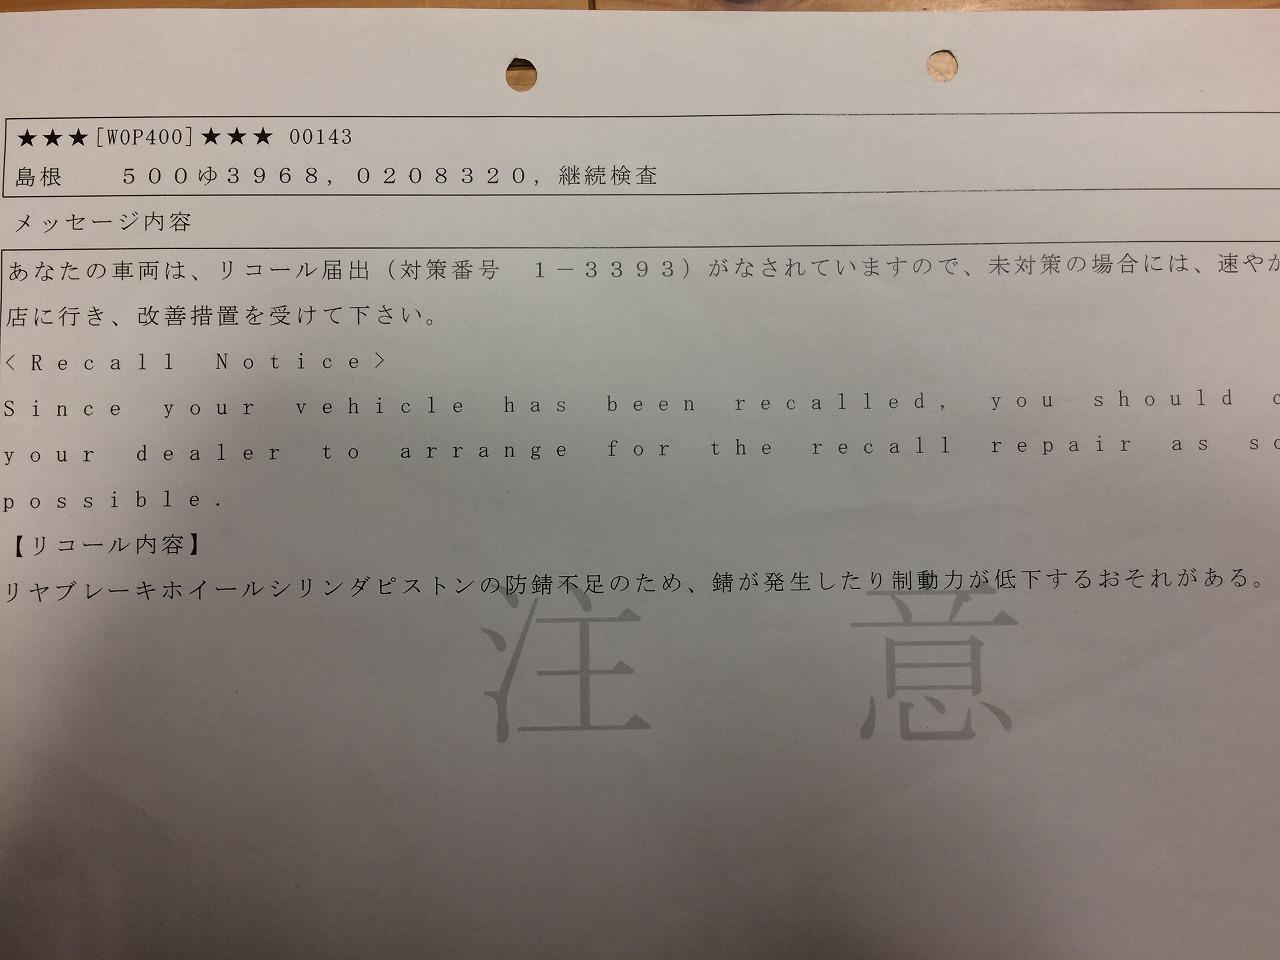 ★★★[WOP400]★★★ 00143
島根　　５００ゆ３９６８，０２０８３２０，継続検査
メッセージ内容
あなたの車両は、リコール届出（対策番号　１－３３９３）がなされていますので、未対策の場合には、速やか
店に行き、改善措置を受けて下さい。
＜Ｒｅｃａｌｌ　Ｎｏｔｉｃｅ＞
Ｓｉｎｃｅ　ｙｏｕｒ　ｖｅｈｉｃｌｅ　ｈａｓ　ｂｅｅｎ　ｒｅｃａｌｌｅｄ，　ｙｏｕ　ｓｈｏｕｌｄ
ｙｏｕｒ　ｄｅａｌｅｒ　ｔｏ　ａｒｒａｎｇｅ　ｆｏｒ　ｔｈｅ　ｒｅｃａｌｌ　ｒｅｐａｉｒ　ａｓ　ｓｏ
ｐｏｓｓｉｂｌｅ．
【リコール内容】
リヤブレーキホイールシリンダピストンの防錆不足のため、錆が発生したり制動力が低下するおそれがある。
注　意